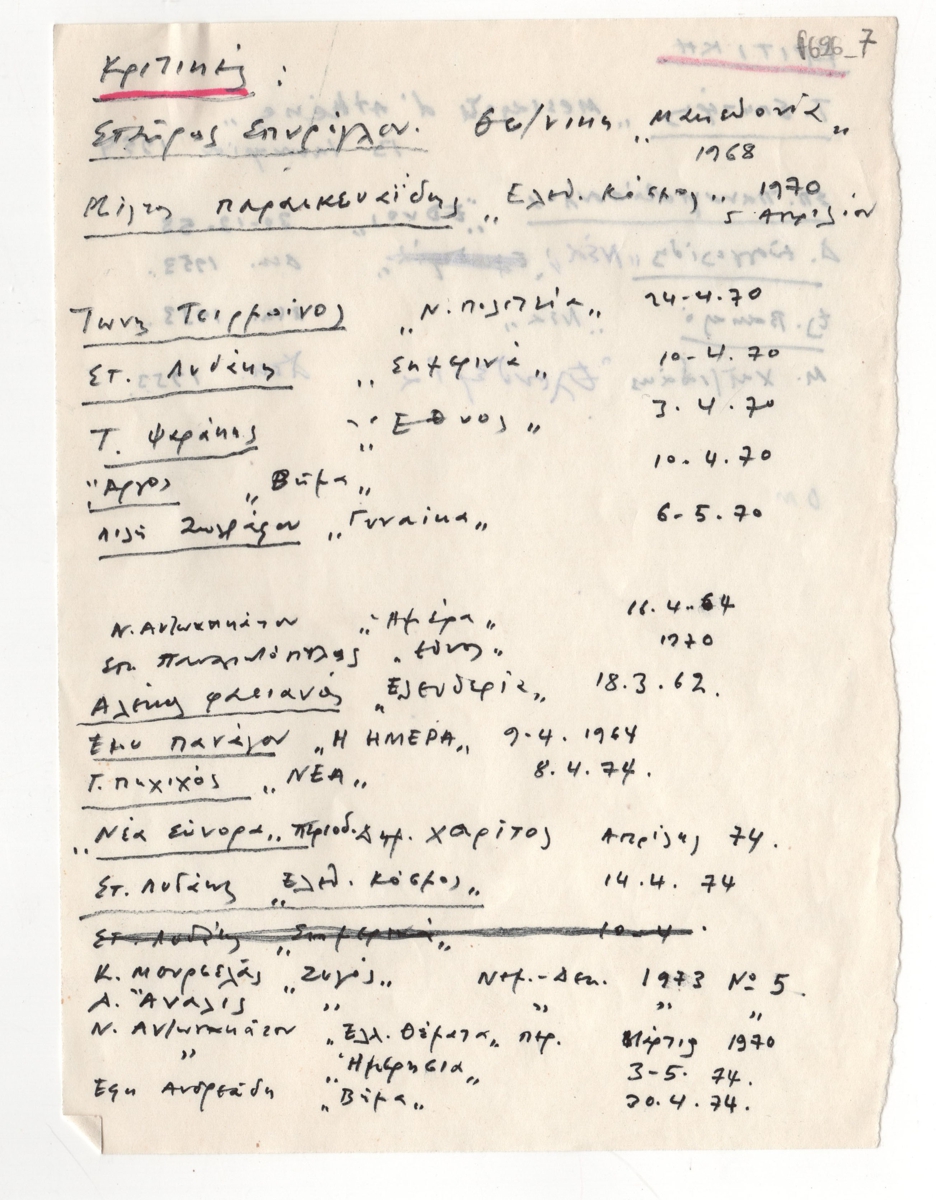 7
Κριτικές :
Σπύρος Σπυρόγλου. Θεσ/νίκη „Μακεδονία„
1968
Μίλτης Παρασκευαΐδης „Ελευθ. Κόσμος„ 1970
5 Απριλίου
Τώνης Τσιρμπίνος „Ν. Πολιτεία„ 24-4.70
Στ. Λυδάκης „Σημερινά„ 10-4.70
Τ. Ψαράκης „Έθνος„ 3.4.70
"Άργος „Βήμα„ 10.4.70
Λιλή Ζωγράφου „Γυναίκα„ 6-5.70
Ν. Αντωνακάτου „Ημέρα„ 16.4.64
Σπ. Παναγιωτόπουλος „Εθνος„ 1970
Αλέκος Φασιανός „Ελευθερία„ 18.3.62.
Έμυ Πανάγου „Η ΗΜΕΡΑ„ 9-4.1964
Γ. Πηχιχός „ΝΕΑ„ 8.4.74.
„Νέα Σύνορα„ Περιοδ. Δημ. Χαρίτος Απρίλης 74.
Στ. Λυδάκης „Ελευθ. Κόσμος„ 14.4.74
Στ. Λυδάκης „Σημερινά„ 10-4.
Κ. Μουρσελάς „Ζυγός„ Νομ.-Δεκ. 1973 Νο 5.
Α. Άναλις „ „ „ „
Ν. Αντωνακάτου „Ελλ. Θέματα„ περ. Μάρτης 1970
„ „Ημερησία„ 3-5.74.
Έφη Ανδρεάδη „Βήμα„ 30.4.74.